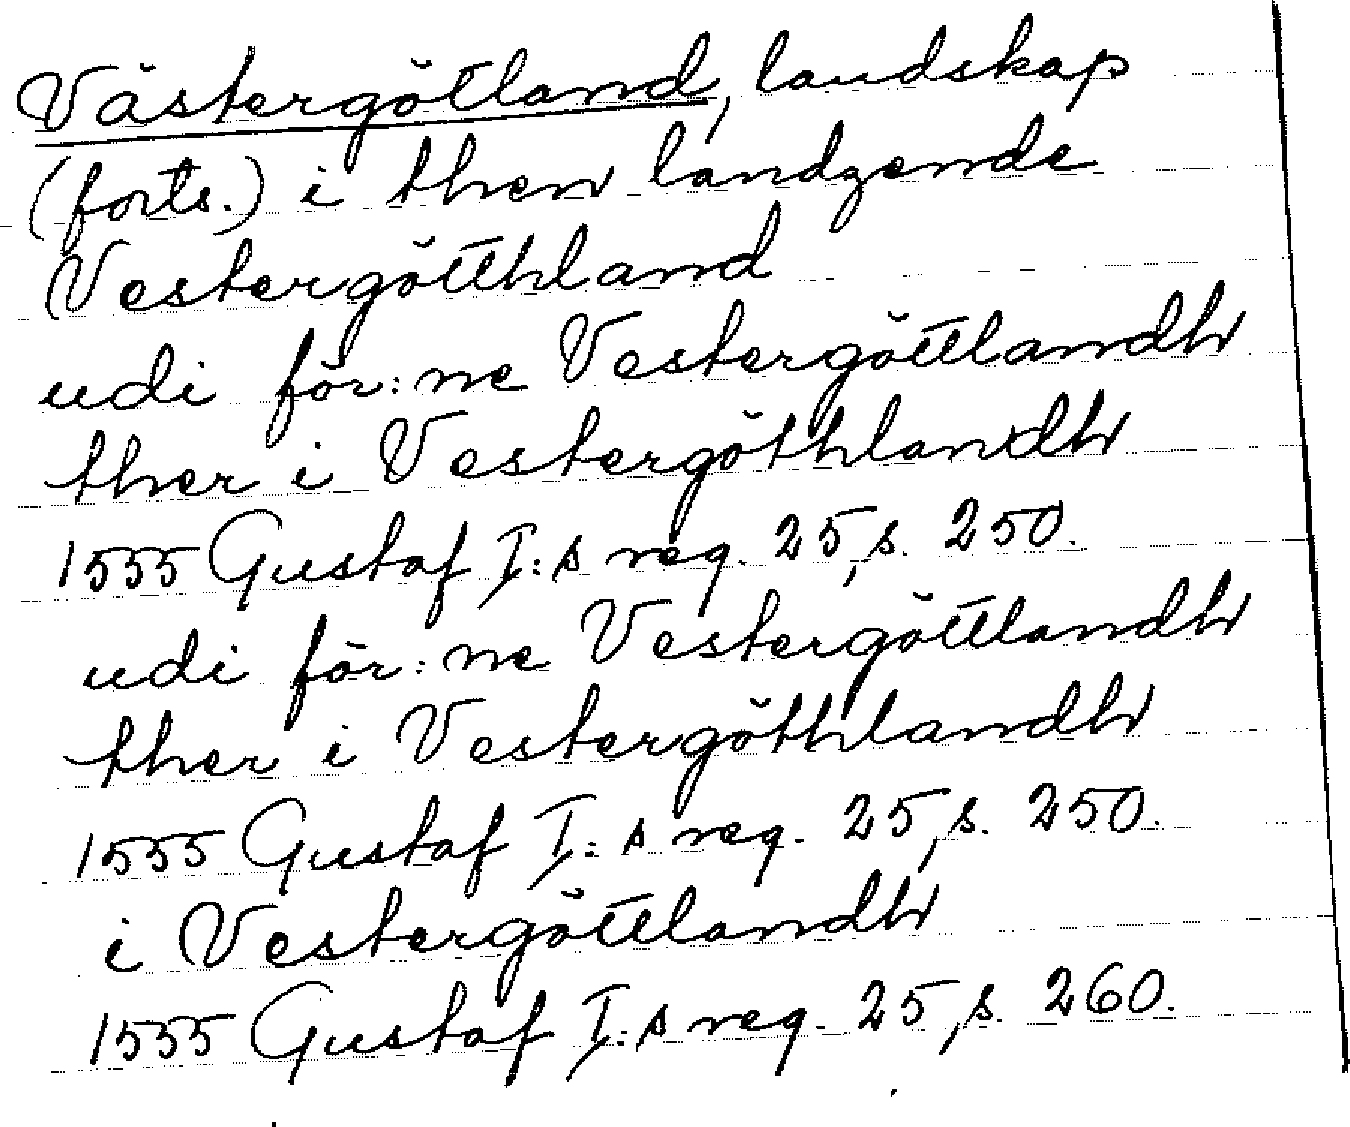 Västergötland, landskap
(forts.) i then landzende
Vestergötthland
udi för:ne Vestergöttlandh
ther i Vestergöthlandh
1555 Gustaf I:s reg. 25, s. 250.
udi för:ne Vestergöttlandh
ther i Vestergöthlandh
1555 Gustaf I:s reg. 25, s. 250.
i Vestergöttlandh
1555 Gustaf I:s reg. 25, s. 260.